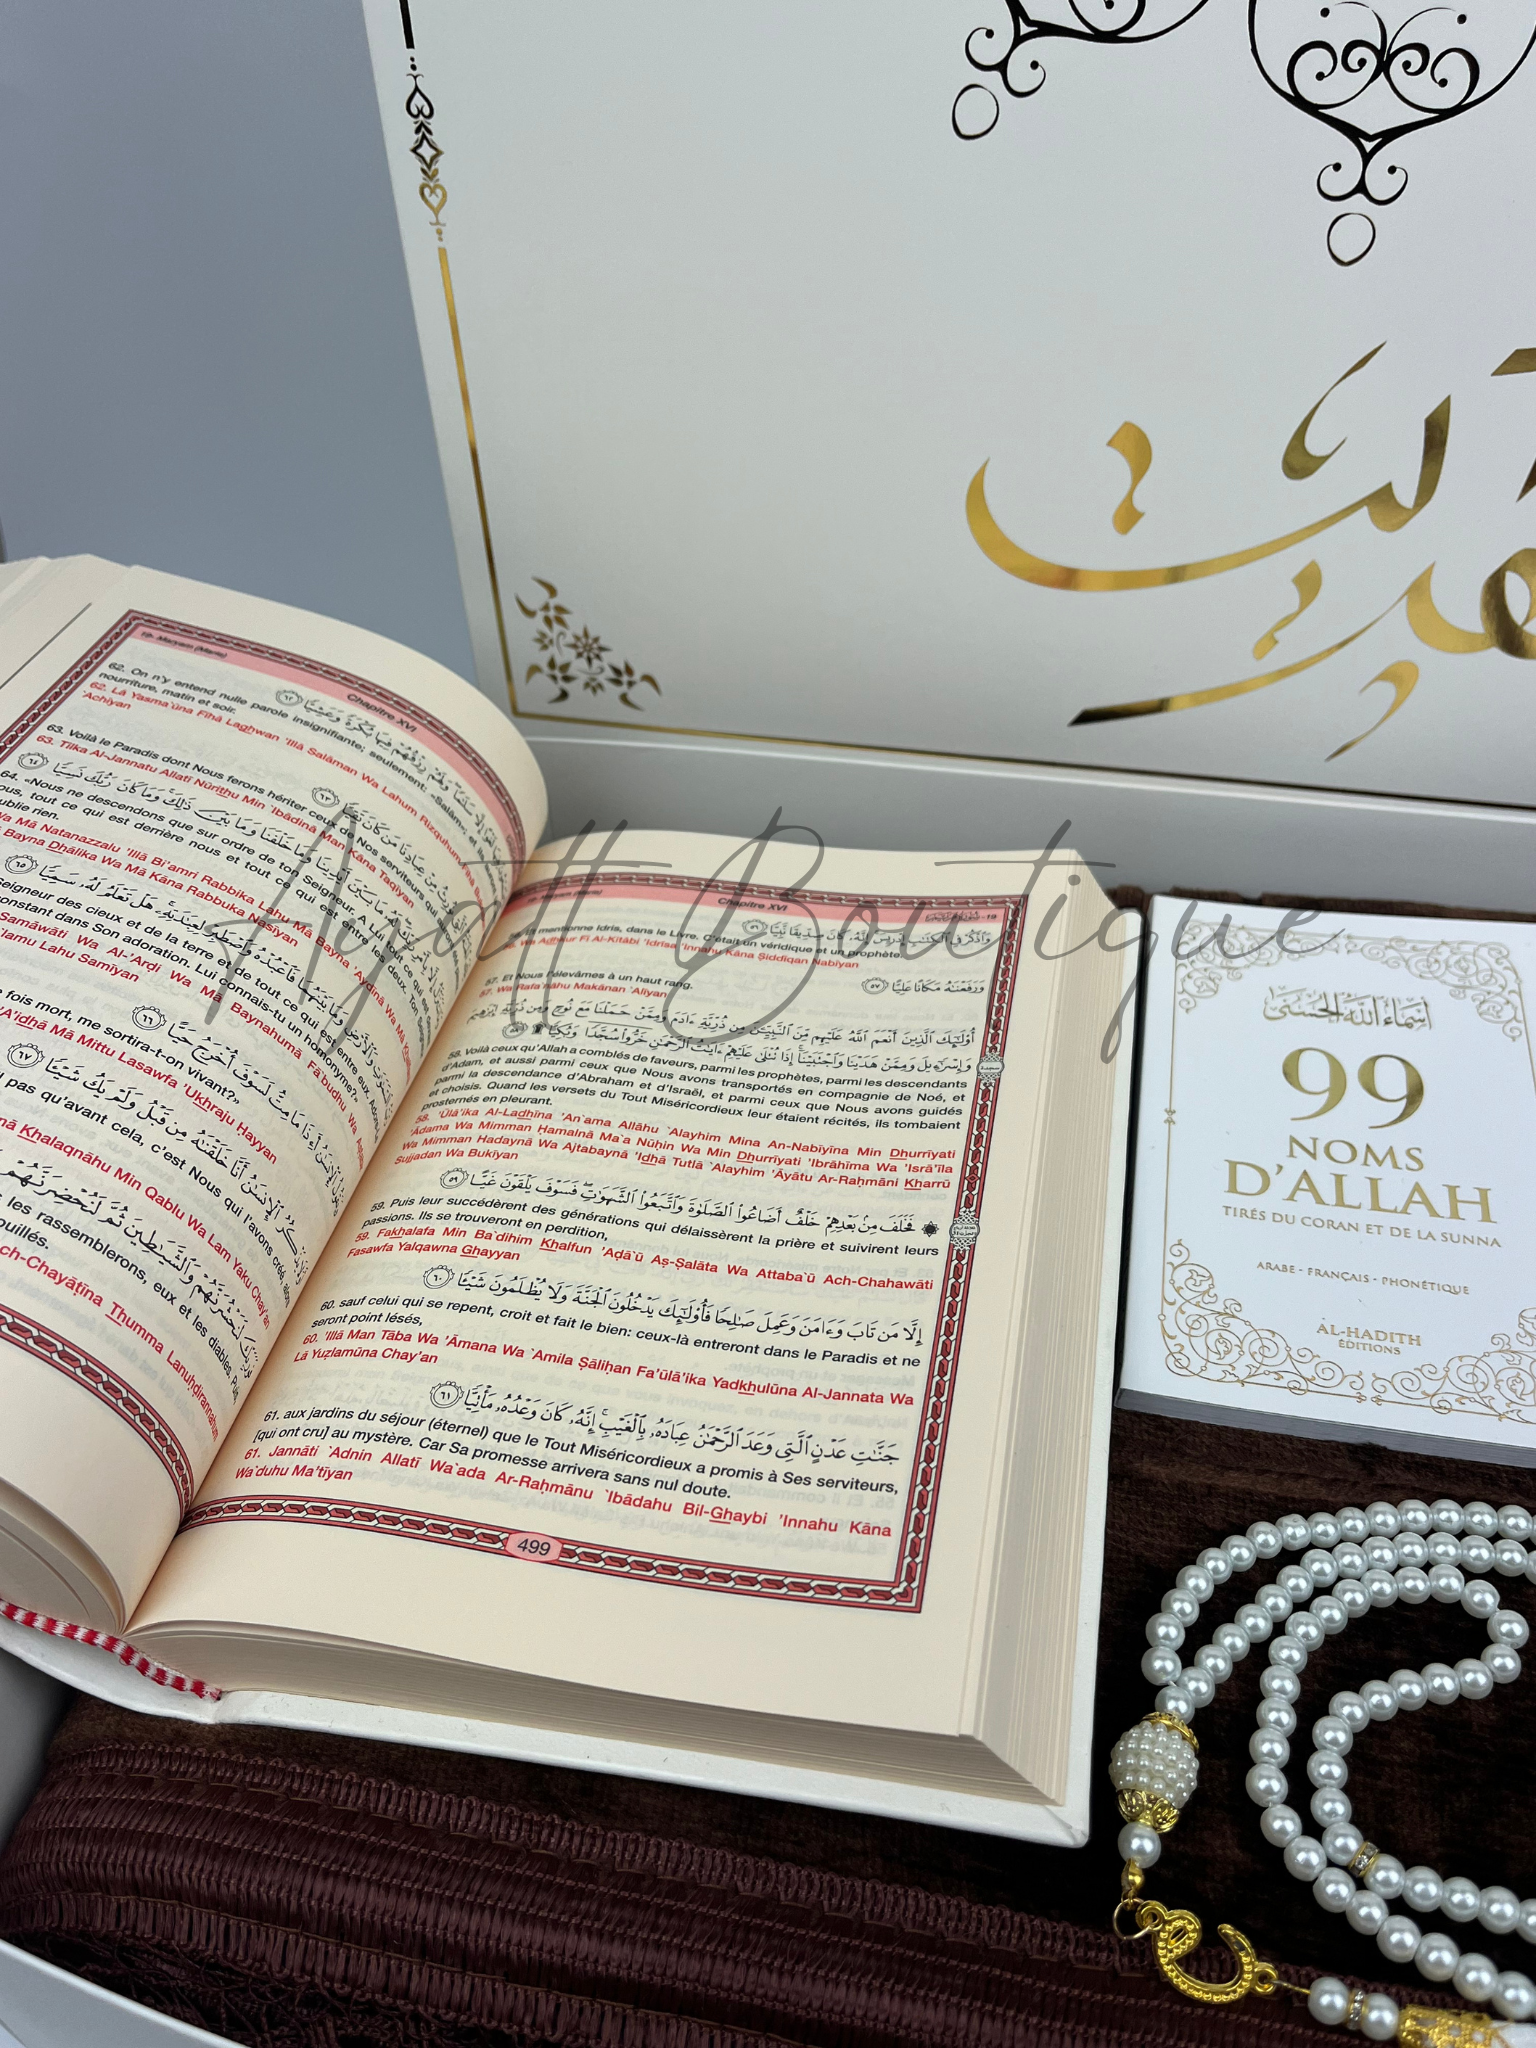 Ayatt Boutique
19- Maryam (Marie)
Chapitre XVI
62. On n'y entend nulle parole insignifiante; seulement: «Salâm»; et
nourriture, matin et soir.
62. Lā Yasma`ūna Fīhā Laghwan 'Illā Salāman Wa Lahum Rizquhum Fīhā
`Achīyan
63. Voilà le Paradis dont Nous ferons hériter ceux de Nos serviteurs qui
63. Tilka Al-Jannatu Allatī Nūrithu Min `Ibādinā Man Kāna Taqīyan
64. «Nous ne descendons que sur ordre de ton Seigneur. A Lui tout ce qui est
tout ce qui est derrière nous et tout ce qui est entre les deux. Ton
oublie rien.
Wa Mā Natanazzalu 'Illā Bi'amri Rabbika Lahu Mā Bayna 'Aydīnā Wa Mā
Bayna Dhālika Wa Mā Kāna Rabbuka Nasīyan
Seigneur des cieux et de la terre et de tout ce qui est entre eux.
constant dans Son adoration. Lui connais-tu un homonyme?»
Samāwāti Wa Al-'Arḍi Wa Mā Baynahumā Fā`budhu Wa
Lahu Samīyan
fois mort, me sortira-t-on vivant?»
'A'idhā Mā Mittu Lasawfa 'Ukhraju Ḥayyan
pas qu'avant cela, c'est Nous qui l'avons créé, alors
Khalaqnāhu Min Qablu Wa Lam Yaku Chay'an
les rassemblerons, eux et les diables. Puis,
Ach-Chayāṭīna Thumma Lanuḥḍirannahum
Chapitre XVI
وَٱذْكُرْ فِى ٱلْكِتَٰبِ إِدْرِيسَ إِنَّهُۥ كَانَ صِدِّيقًا نَّبِيًّا ٥٦
mentionne Idris, dans le Livre. C'était un véridique et un prophète.
Wa Adhkur Fī Al-Kitābi 'Idrīsa 'Innahu Kāna Ṣiddīqan Nabīyan
وَرَفَعْنَٰهُ مَكَانًا عَلِيًّا ٥٧
57. Et Nous l'élevâmes à un haut rang.
57. Wa Rafa`nāhu Makānan `Alīyan
أُو۟لَٰٓئِكَ ٱلَّذِينَ أَنْعَمَ ٱللَّهُ عَلَيْهِم مِّنَ ٱلنَّبِيِّۦنَ مِن ذُرِّيَّةِ ءَادَمَ وَمِمَّنْ حَمَلْنَا مَعَ نُوحٍ وَمِن ذُرِّيَّةِ إِبْرَٰهِيمَ
وَإِسْرَٰٓءِيلَ وَمِمَّنْ هَدَيْنَا وَٱجْتَبَيْنَآ إِذَا تُتْلَىٰ عَلَيْهِمْ ءَايَٰتُ ٱلرَّحْمَٰنِ خَرُّوا۟ سُجَّدًا وَبُكِيًّا ۩ ٥٨
58. Voilà ceux qu'Allah a comblés de faveurs, parmi les prophètes, parmi les descendants
d'Adam, et aussi parmi ceux que Nous avons transportés en compagnie de Noé, et
parmi la descendance d'Abraham et d'Israël, et parmi ceux que Nous avons guidés
et choisis. Quand les versets du Tout Miséricordieux leur étaient récités, ils tombaient
prosternés en pleurant.
58. 'Ūlā'ika Al-Ladhīna 'An`ama Allāhu `Alayhim Mina An-Nabīyīna Min Dhurrīyati
'Ādama Wa Mimman Ḥamalnā Ma`a Nūḥin Wa Min Dhurrīyati 'Ibrāhīma Wa 'Isrā'īla
Wa Mimman Hadaynā Wa Ajtabaynā 'Idhā Tutlā `Alayhim 'Āyātu Ar-Raḥmāni Kharrū
Sujjadan Wa Bukīyan
۞ فَخَلَفَ مِنۢ بَعْدِهِمْ خَلْفٌ أَضَاعُوا۟ ٱلصَّلَوٰةَ وَٱتَّبَعُوا۟ ٱلشَّهَوَٰتِ فَسَوْفَ يَلْقَوْنَ غَيًّا ٥٩
59. Puis leur succédèrent des générations qui délaissèrent la prière et suivirent leurs
passions. Ils se trouveront en perdition,
59. Fakhalafa Min Ba`dihim Khalfun 'Aḍā`ū Aṣ-Ṣalāta Wa Attaba`ū Ach-Chahawāti
Fasawfa Yalqawna Ghayyan
إِلَّا مَن تَابَ وَءَامَنَ وَعَمِلَ صَٰلِحًا فَأُو۟لَٰٓئِكَ يَدْخُلُونَ ٱلْجَنَّةَ وَلَا يُظْلَمُونَ شَيْـًٔا ٦٠
60. sauf celui qui se repent, croit et fait le bien: ceux-là entreront dans le Paradis et ne
seront point lésés,
60. 'Illā Man Tāba Wa 'Āmana Wa `Amila Ṣāliḥan Fa'ūlā'ika Yadkhulūna Al-Jannata Wa
Lā Yuẓlamūna Chay'an
جَنَّٰتِ عَدْنٍ ٱلَّتِى وَعَدَ ٱلرَّحْمَٰنُ عِبَادَهُۥ بِٱلْغَيْبِ إِنَّهُۥ كَانَ وَعْدُهُۥ مَأْتِيًّا ٦١
61. aux jardins du séjour (éternel) que le Tout Miséricordieux a promis à Ses serviteurs,
[qui ont cru] au mystère. Car Sa promesse arrivera sans nul doute.
61. Jannāti `Adnin Allatī Wa`ada Ar-Raḥmānu `Ibādahu Bil-Ghaybi 'Innahu Kāna
Wa`duhu Ma'tīyan
499
أسماء الله الحسنى
99
NOMS
D'ALLAH
TIRÉS DU CORAN ET DE LA SUNNA
ARABE - FRANÇAIS - PHONÉTIQUE
AL-HADITH
ÉDITIONS